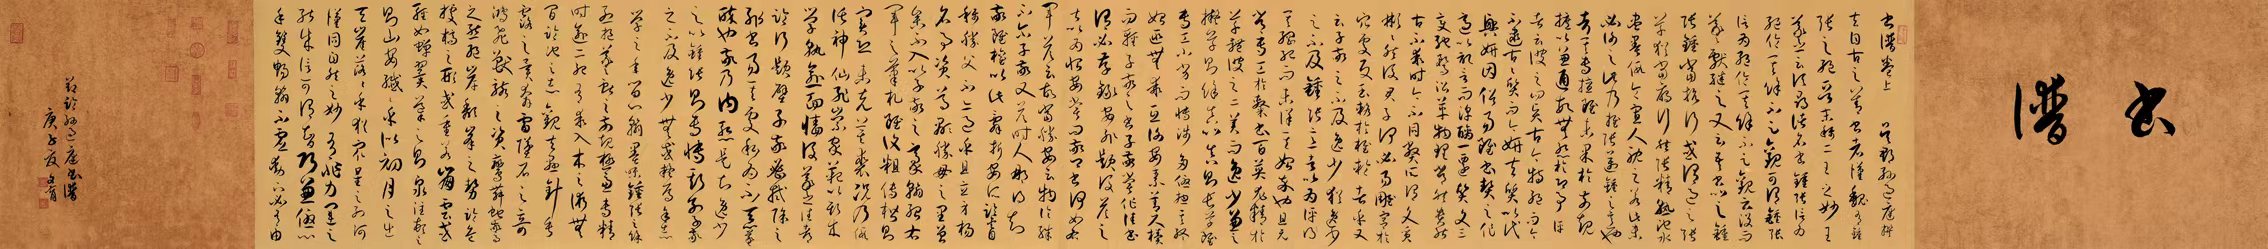 書譜
書譜卷上 吳郡孫過庭撰
夫自古之善書者漢魏有鍾
張之絕晉末稱二王之妙王
羲之云頃尋諸名書鍾張信為
絕倫其餘不足觀可謂鍾張
云沒而
羲獻繼之又云吾書比之鍾
張鍾當抗行或謂過之張
草猶當鴈行然張精熟池水
盡墨假令寡人耽之若此未
必謝之此乃推張邁鍾之意也
考其專擅雖未果於前規
摭以兼通故無慚於即事評
者云彼之四賢古今特絕而今
不逮古古質而今妍夫質以代
興妍因俗易雖書契之作
適以記言而淳醨一遷質文三
變馳騖沿革物理常然貴能
古不乖時今不同弊所謂文質
彬彬然後君子何必易雕宮於
穴處反玉輅於椎輪者乎又
云子敬之不及逸少猶逸少
之不及鍾張意者以為評得
其綱紀而未詳其始卒也且元
常專工於隸書伯英尤精於
草體彼之二美而逸少兼之
擬草則餘真比真則長草雖
專工小劣而博涉多優總其終
始匪無乖互謝安素善尺牘
而輕子敬之書子敬嘗作佳書
與之謂必存錄安輒題後答之
甚以為恨安嘗問敬卿書何如右
軍答云故當勝安云物論殊
不爾子敬又答時人那得知
敬雖權以此辭折安所鑒自
稱勝父不亦過乎且立身揚
名事資尊顯勝母之里曾
參不入以子敬之豪翰紹右
軍之筆札雖復粗傳楷則
實恐未克箕裘況乃假
託神仙恥崇家範以斯成
學孰愈面牆後羲之往都
臨行題壁子敬密拭除之
輒書易其處私為不惡羲
之還見乃歎曰吾去時真大
醉也敬乃內慚是知逸少
之比鍾張則專博斯別子敬
之不及逸少無或疑焉余志
學之年留心翰墨味鍾張之餘
烈挹羲獻之前規極慮專精
時逾二紀有乖入木之術無
間臨池之志觀夫懸針垂
露之異奔雷墜石之奇
鴻飛獸駭之資鸞舞蛇驚
之態絕岸頹峰之勢臨危
據槁之形或重若崩雲或
輕如蟬翼導之則泉注頓之
則山安纖纖乎似初月之出
天崖落落乎猶眾星之列河
漢同自然之妙有非力運之
能成信可謂智巧兼優心
手雙暢翰不虛動下必有由
節臨孫過庭書譜
庚子夏